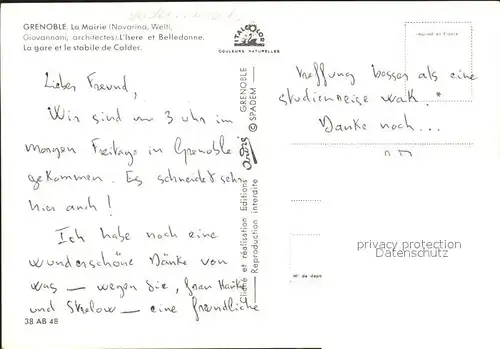 GRENOBLE. La Mairie (Novarina, Welti,
Giovannoni, architectes). L'Isere et Belledonne.
La gare et le stabile de Calder.
ITALCOLOR
COULEURS NATURELLES
Imprimé en France
Lieber Freund,
Wir sind um 3 Uhr im
morgen Freitags in Grenoble
gekommen. Es schneidet sehr
hier auch!
Ich habe noch eine
wunderschöne Dänke von
was — wegen Sie, Frau
und Strelow — eine freundliche
38 AB 48
Cliché et réalisation Editions
GRENOBLE
© SPADEM
Reproduction interdite
treffung besser als eine
studienreise war. *
Danke noch...
privacy protection
Datenschutz
N° de dépôt